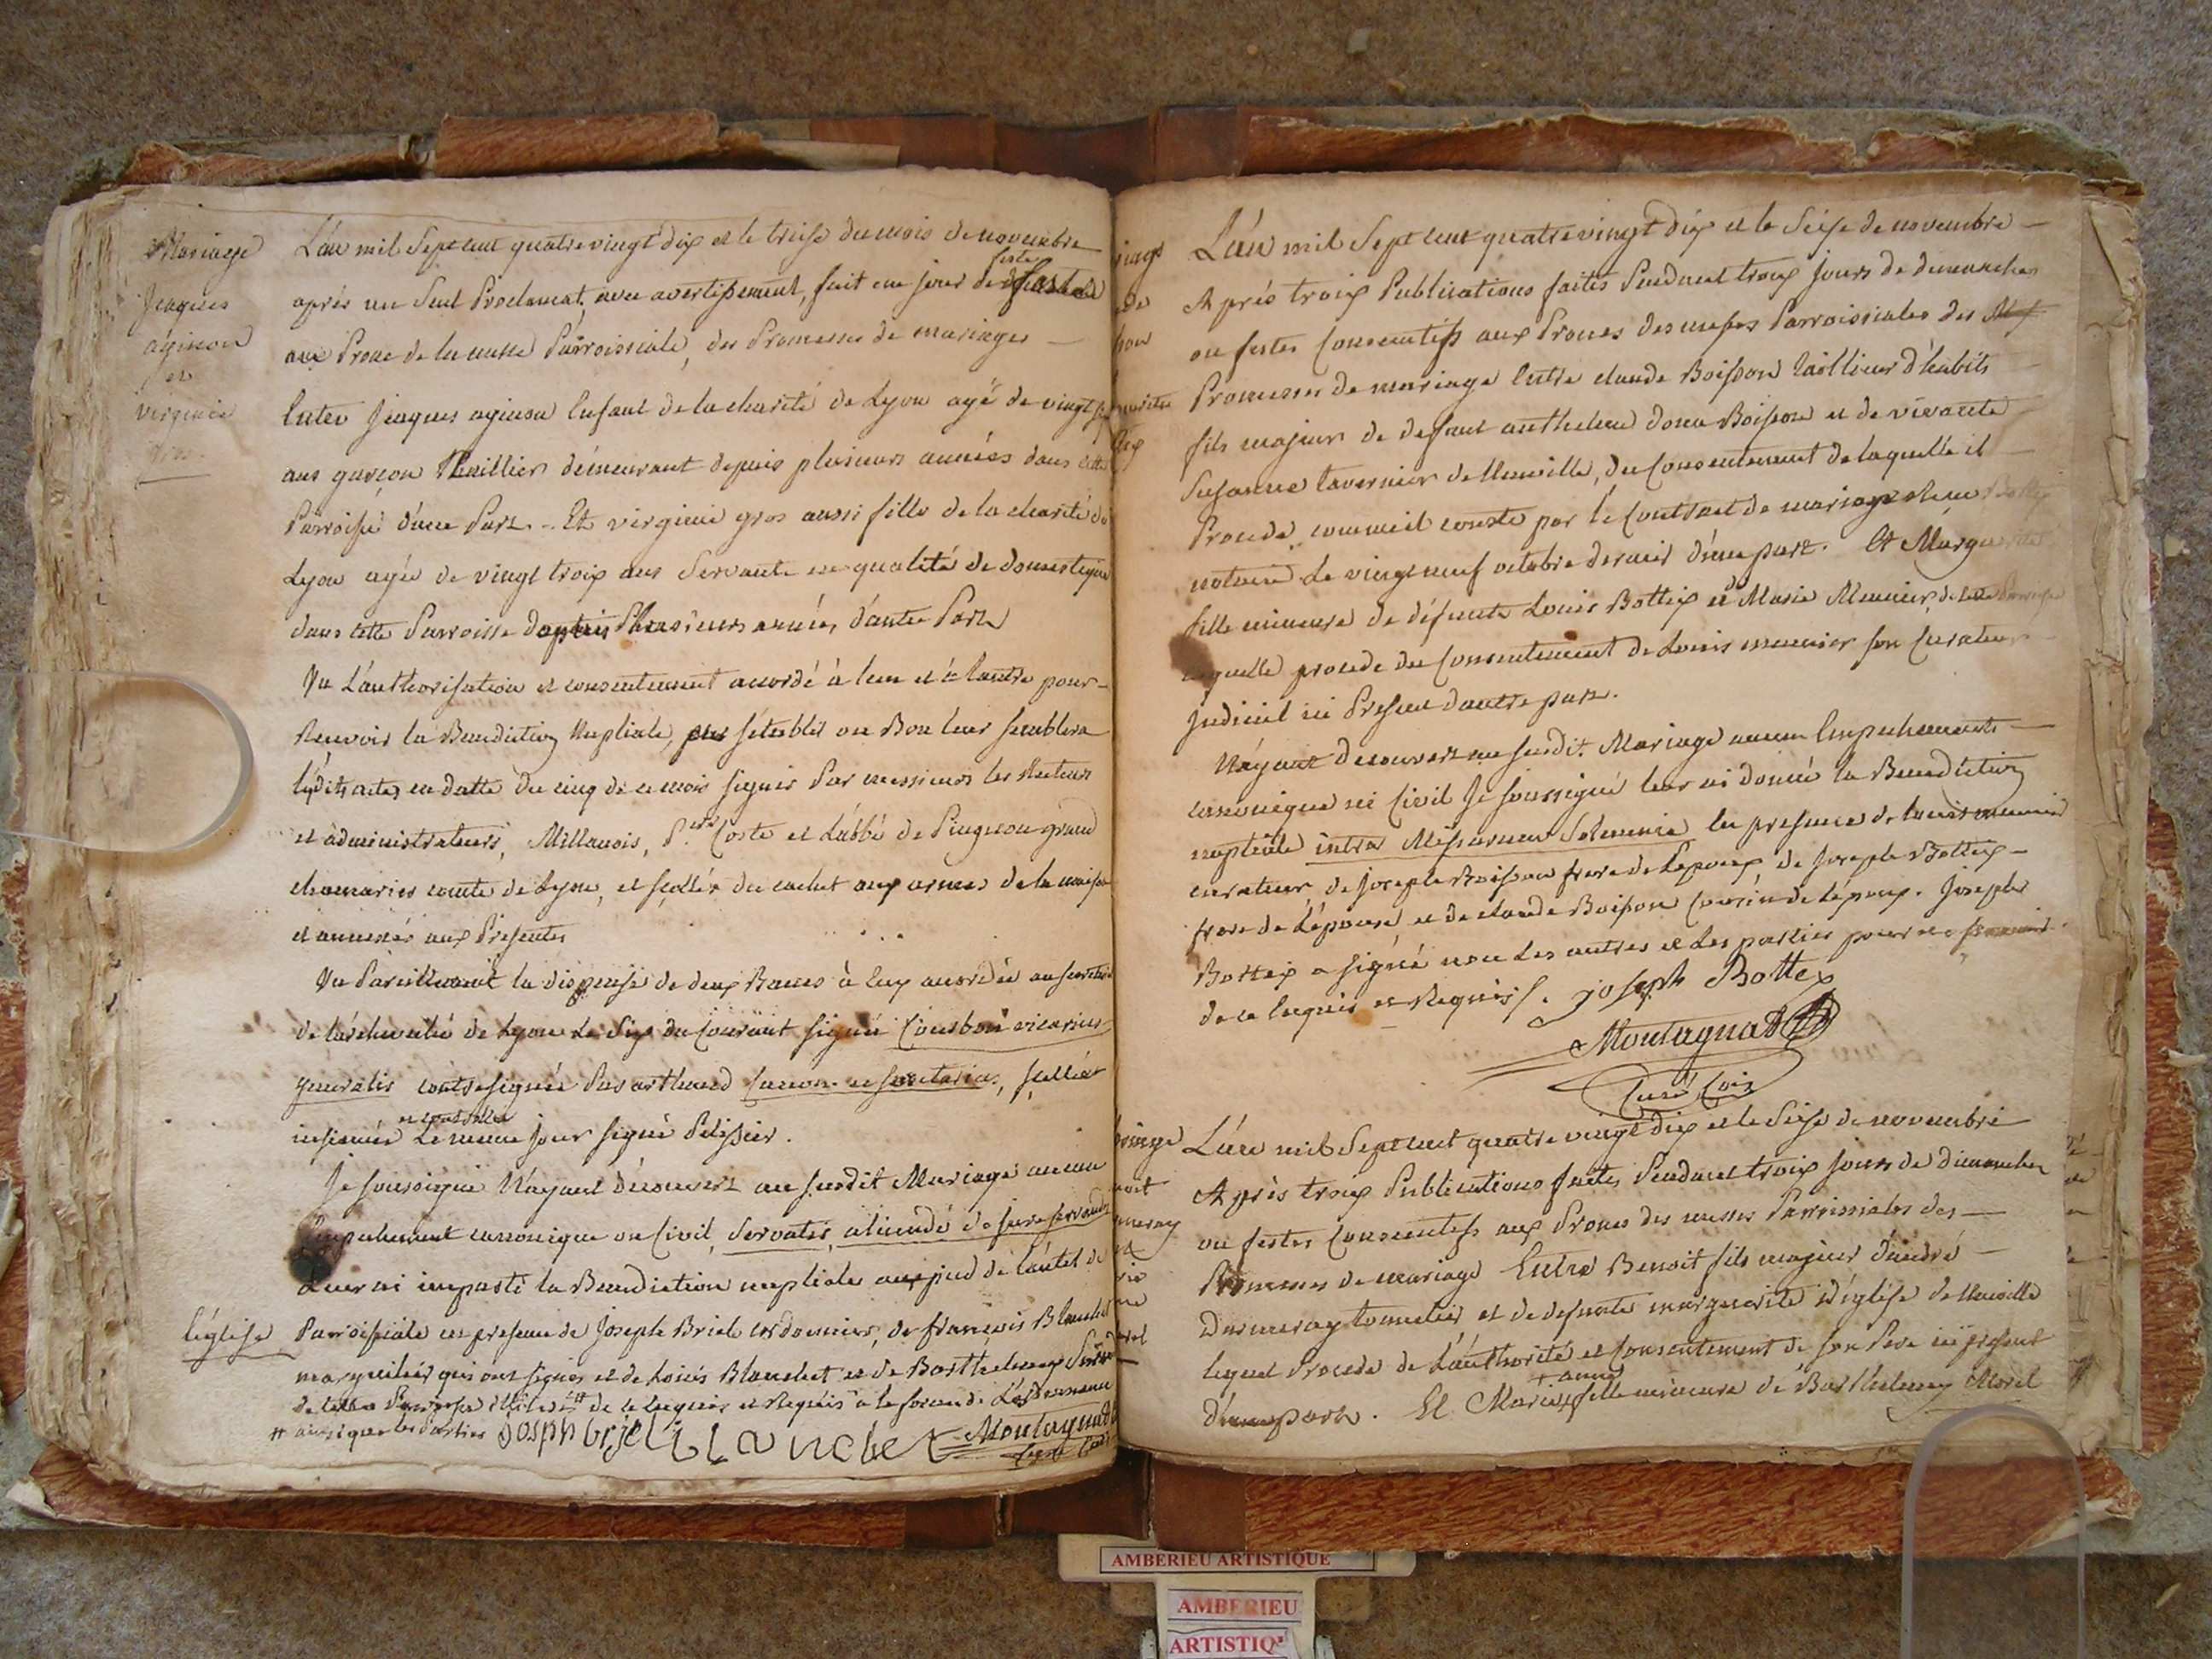 Mariage
Jeaques
aginon
et
virginie
gros
L'an mil Sept cent quatre vingt dix et le treise du mois de novembre
après un Seul Proclamat, avec avertissement, fait un jour de feste
aux Prone de la messe Parroissiale, des Promesses de mariages
Entre Jeaques aginon Enfant de la charité de Lyon agé de vingt
ans garçon demeurant depuis plusieurs années dans cette
Parroisse d'une Part. Et virginie gros aussi fille de la charité de
Lyon agée de vingt trois ans Servante en qualité de domestique
dans cette Parroisse depuis Plusieurs années d'autre Part
Vu L'authorisation et consentement accordé à l'un et à l'autre pour
Recevoir la Benediction Nuptiale, s'etablir ou Bon leur semblera
lesdits actes en datte du cinq de ce mois signés Par messieurs les Recteurs
et administrateurs, Millanois, Coste et L'abbé de Pingeon grand
chamarier comte de Lyon, et scellés du cachet aux armes de la maison
et annexés aux Presentes
Vu Pareillement la dispense de deux Bancs à Eux accordée au secretariat
de l'archevêché de Lyon Le Six du Courant signée Courbon vicarius
generalis contresignée Par arthaud canon. et secretarius, scellée
insinuée et controllée Le meme jour signé Pelissier.
Je soussigné N'ayant découvert au susdit Mariage aucun
Empechement canonique ou Civil, Servatis aliundè de jure servandis
Leur ai imparti la Benediction nuptiale aux pied de l'autel de
l'église
Parroissiale en presence de Joseph Briel cordonnier, de françois Blanchet
marguillier qui ont signés et de Loüis Blanchet et de Barthelemy
de cette Parroisse # de ce Enquis et Requis à la forme de L'ordonnance
# ainsi que les Parties Josph brjel blanchet Montagnat
Curé
L'an mil Sept cent quatre vingt dix et le Seise de novembre
Après troix Publications faites Pendant troix Jours de dimanches
ou festes Consecutifs aux Prones des messes Parroissiales des
Promesses de mariage Entre claude Boisson Taillieur d'habits
fils majeur de defunt anthelme dona Boisson et de vivante
Susanne tavernier de Neuville, du Consentement de laquelle il
Procede, comme il conste par le Contract de mariage chez Bottex
notaire Le vingt neuf octobre dernier d'une part. Et Marguerite
fille mineure de défunts Louis Bottex et de Marie Meunier, de cette Parroisse
laquelle procede du Consentement de Louis meunier son Curateur
judiciel ici Present d'autre part.
N'ayant decouvert au susdit Mariage aucun Empechements
canonique ni Civil Je soussigné leur ai donné la Benediction
nuptiale intra Missarum Solemnia En presence de Louis meunier
curateur, de Joseph Boisson frere de L'epoux, de Joseph Bottex
frere de L'épouse, et de claude Boisson Cousin de L'époux. Joseph
Bottex a signé non Les autres et Les parties pour ne sçavoir
de ce Enquis et Requis. joseph Bottex
Montagnat
Curé
L'an mil Sept cent quatre vingt dix et le Seise de novembre
Après troix Publications faites Pendant troix Jours de dimanches
ou festes Consecutifs aux Prones des messes Parroissiales des
Promesses de mariage Entre Benoit fils majeur d'andré
Durmeray tonnelier et de defunte marguerite d'église de Neuville
lequel Procede de L'authorité et Consentement de son Pere ici present
d'une part. Et Marie + anne fille mineure de Barthelemy Morel
AMBERIEU ARTISTIQUE
AMBERIEU
ARTISTIQ